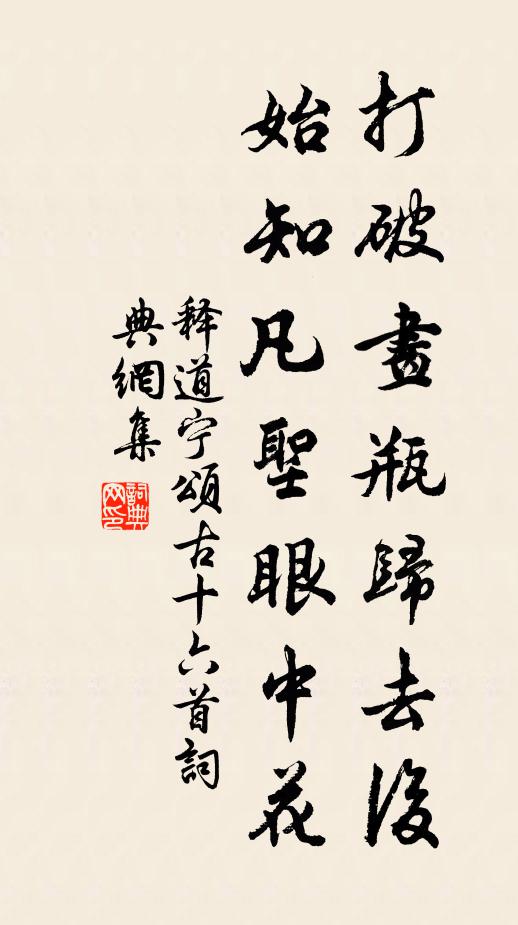 打破畫瓶歸去後
始知凡聖眼中花
释道宁頌古十六首詞
典網集
詞典
网印